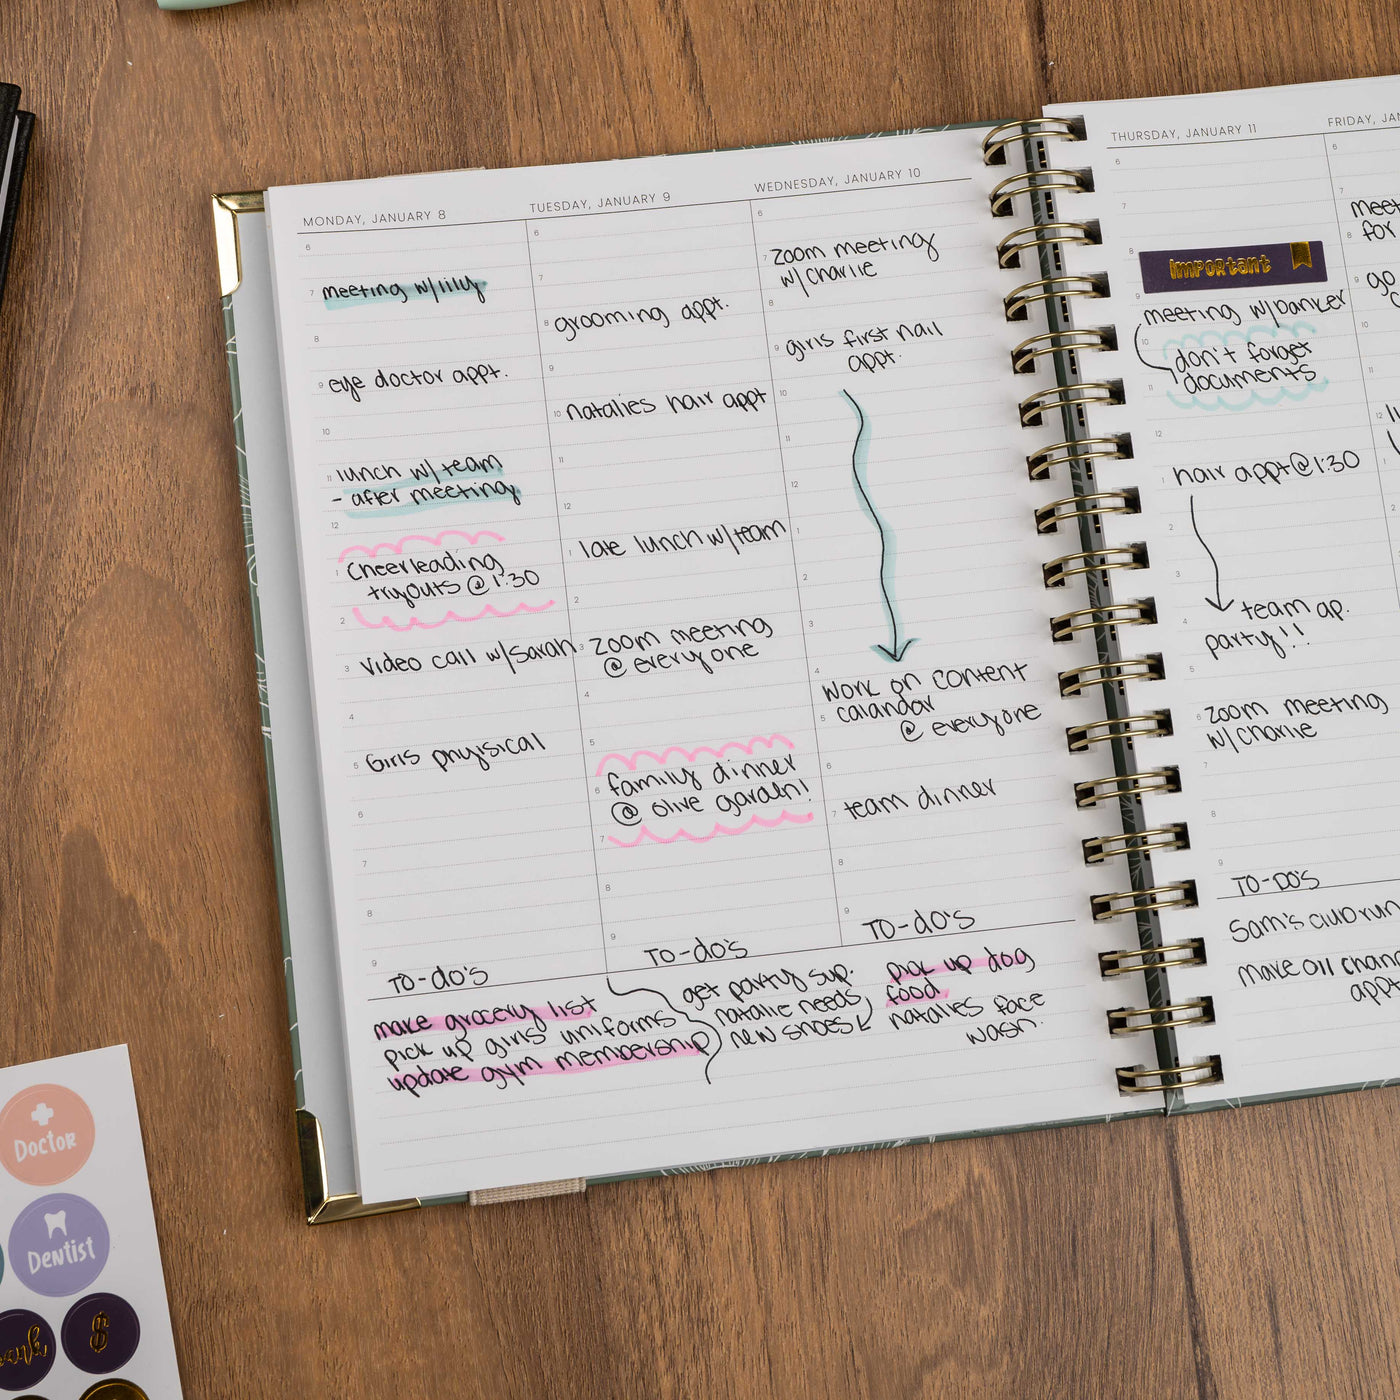 MONDAY, JANUARY 8
6
7 meeting w/lily
8
9 eye doctor appt.
10
11 lunch w/ team
- after meeting
12
1 Cheerleading
tryouts @ 1:30
2
3 Video call w/Sarah
4
5 Girls phyisical
6
7
8
9
TO-do's
make grocery list
pick up girls uniforms
update gym membership
TUESDAY, JANUARY 9
6
7
8 grooming appt.
9
10 natalies hair appt
11
12
1 late lunch w/team
2
3 zoom meeting
@ everyone
4
5
6 family dinner
@ olive garden!
7
8
9
TO-do's
get party sup.
natalie needs
new shoes
WEDNESDAY, JANUARY 10
6
7 zoom meeting
w/ Charlie
8
9 girls first nail
appt.
10
11
12
1
2
3
4
work on content
5 calandar
@ everyone
6
7 team dinner
8
9
TO-do's
pick up dog
food
natalies face
wash.
THURSDAY, JANUARY 11
6
7
8
Important
9
meeting w/banker
10
don't forget
11 documents
12
1 hair appt@1:30
2
3
4 team ap.
party!!
5
6 zoom meeting
w/Charlie
7
8
9
TO-DO'S
Sam's club run
make oil
appt
FRIDAY,
6
7
8 for
9 go
10
11
12
1
2
Doctor
Dentist
$